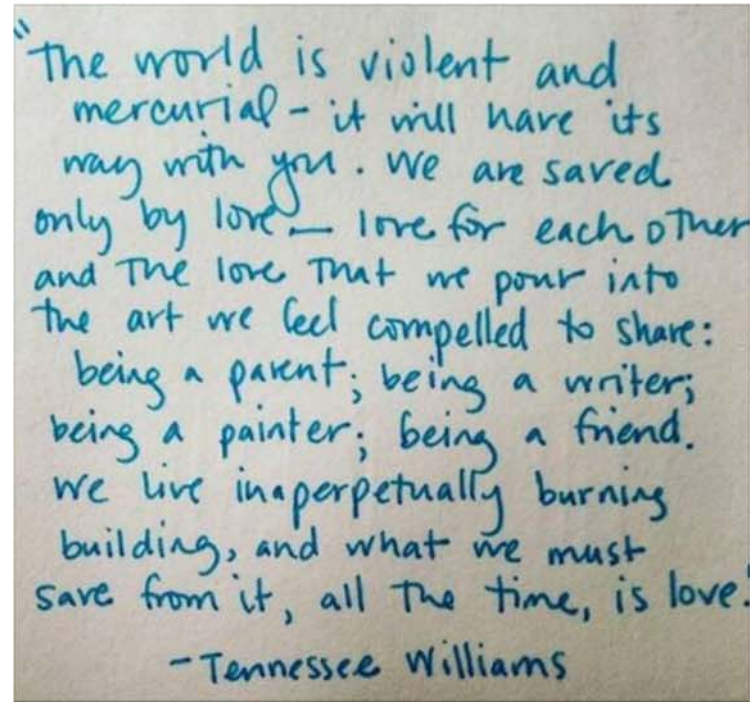 "The world is violent and
mercurial - it will have its
way with you. We are saved
only by love — love for each other
and the love that we pour into
the art we feel compelled to share:
being a parent; being a writer;
being a painter; being a friend.
We live in a perpetually burning
building, and what we must
save from it, all the time, is love."
- Tennessee Williams